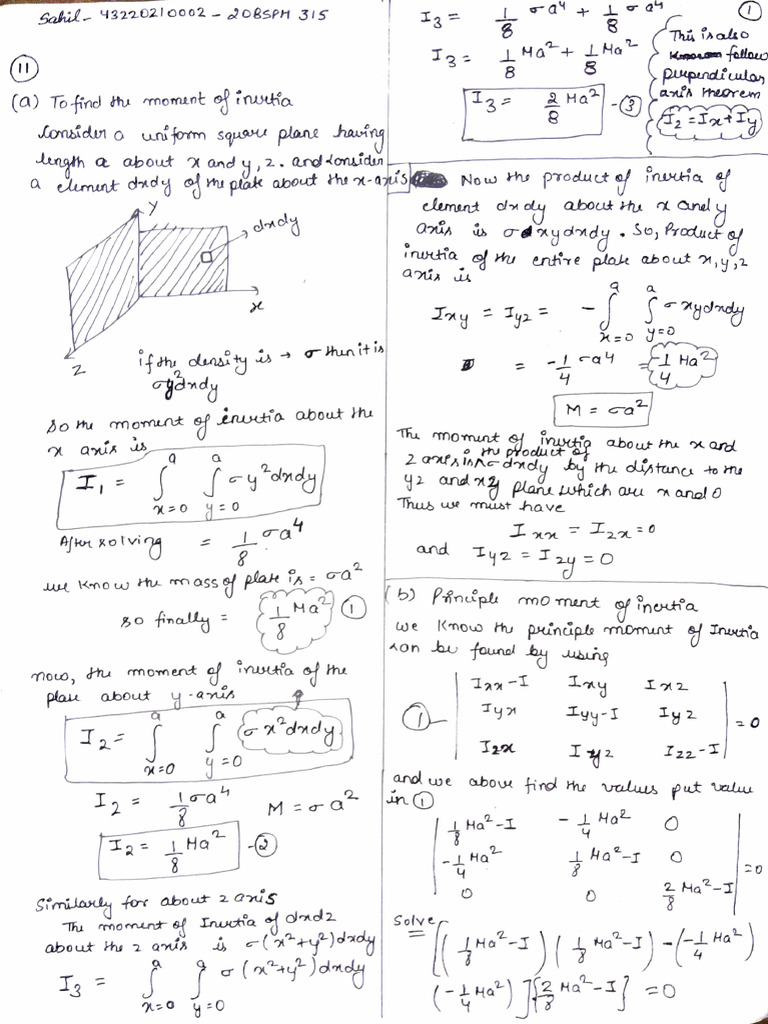 Sahil - 43220210002 - 20BSPH 315
(11)
(a) To find the moment of inertia
Consider a uniform square plane having
length a about x and y, z. and consider
a element dxdy of the plate about the x-axis
Y
dxdy
x
Z
if the density is → σ then it is
σy²dxdy
So the moment of inertia about the
x axis is
I₁ = ∫ₓ₌₀ᵃ ∫ᵧ₌₀ᵃ σy²dxdy
After solving = 1/8 σa⁴
we know the mass of plate is = σa²
so finally = 1/8 Ma² (1)
now, the moment of inertia of the
plate about y-axis
I₂ = ∫ₓ₌₀ᵃ ∫ᵧ₌₀ᵃ σx²dxdy
I₂ = 1/8 σa⁴ M = σa²
I₂ = 1/8 Ma² -(2)
Similarly for about z axis
The moment of Inertia of dxdz
about the z axis is σ(x²+y²)dxdy
I₃ = ∫ₓ₌₀ᵃ ∫ᵧ₌₀ᵃ σ(x²+y²)dxdy
(1)
I₃ = 1/8 σa⁴ + 1/8 σa⁴
I₃ = 1/8 Ma² + 1/8 Ma²
I₃ = 2/8 Ma² -(3)
This is also
follow
perpendicular
axis theorem
I₂ = Ix + Iy
Now the product of inertia of
element dxdy about the x and y
axis is σxydxdy. So, Product of
inertia of the entire plate about x, y, z
axis is
Ixy = Iyz = -∫ₓ₌₀ᵃ ∫ᵧ₌₀ᵃ σxydxdy
= -1/4 σa⁴ = -1/4 Ma²
M = σa²
The moment of inertia about the x and
the product of
z axis is σdxdy by the distance to the
yz and xy plane which are x and 0
Thus we must have
Ixx = Izx = 0
and Iyz = Izy = 0
(b) Principle moment of inertia
we know the principle moment of Inertia
can be found by using
(1) | Ixx-I Ixy Ixz |
| Iyx Iyy-I Iyz | = 0
| Izx Iyz Izz-I |
and we above find the values put value
in (1)
| 1/8 Ma²-I -1/4 Ma² 0 |
| -1/4 Ma² 1/8 Ma²-I 0 | = 0
| 0 0 2/8 Ma²-I |
Solve
[(1/8 Ma²-I)(1/8 Ma²-I) - (-1/4 Ma²)
(-1/4 Ma²)] [2/8 Ma²-I] = 0